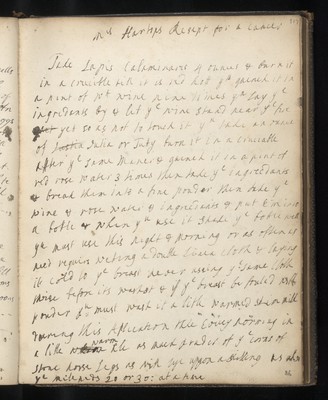 Mrs Hartops Receipt for a Cancer
Take Lapis Calaminaris 4 ounces & burn it
in a crucible till it is red hot yn quench it in
a pint of wt wine nine times yn lay ye
ingredients by & let ye wine stand near ye fire
yet so as not to touch it yn take an ounce
of Tutia or Tuty burn it in a crucible
after ye same maner & quench it in a pint of
red rose water 3 times then take ye ingredients
& break them into a fine powder then take ye
wine & rose water & ingredients & put
a botle & when yu use it shake ye botle well
yu must use this night & morning or as often as
need requirs weting a double linen cloth & laying
it cold to ye breast never using ye same cloth
twice before its washt & if ye breast be fouled with
powder yu must wash it a litle warmed
during this Aplication take every morning in
a litle warm Ale as much powder of ye corns of
stone horse Legs as will lye upon a shilling
ye milepeeds 20 or 30: at a time